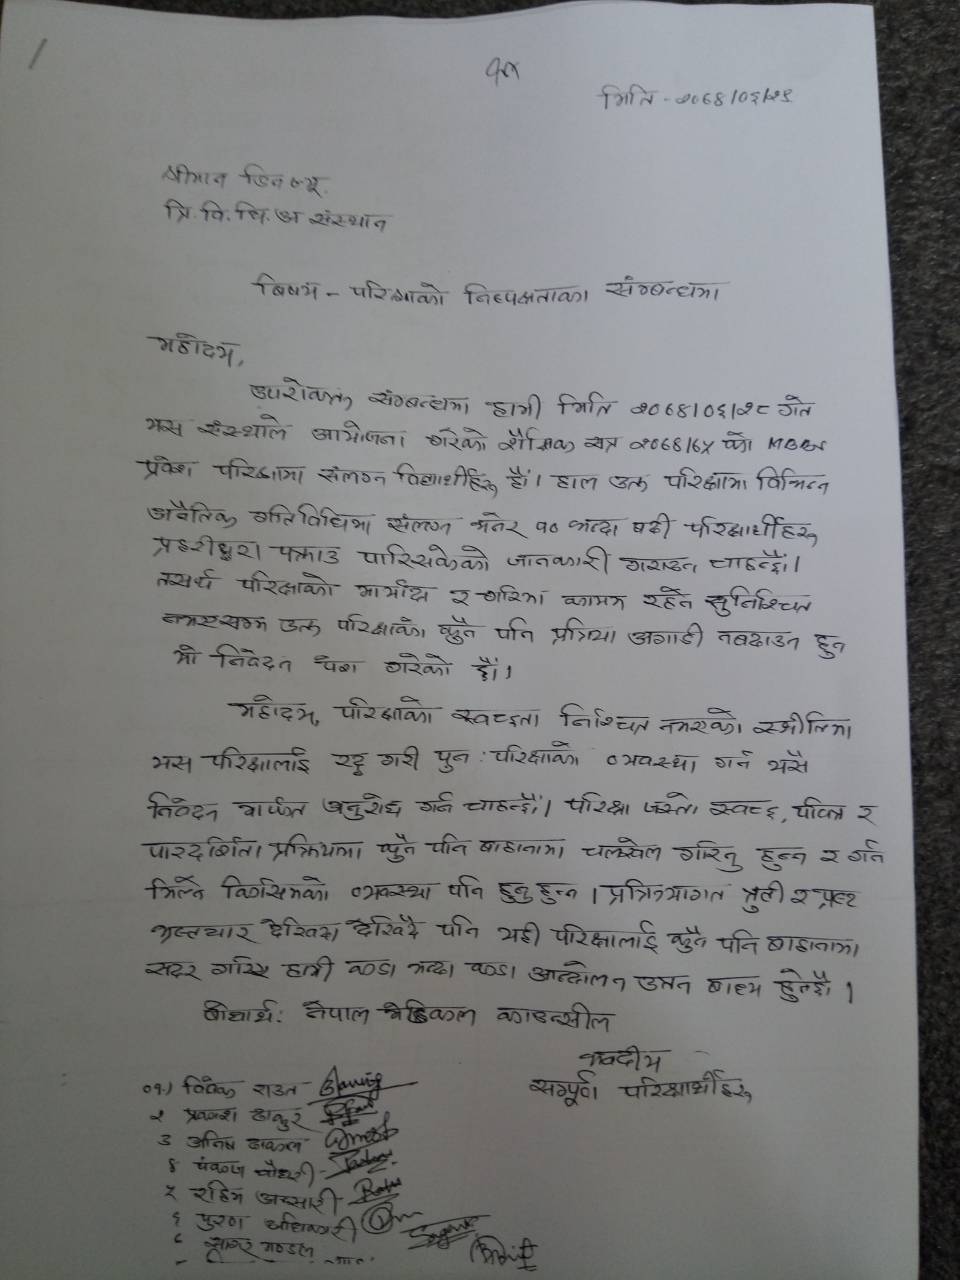 मिति - २०६४/०६/२९
श्रीमान डिन ज्यू
त्रि. वि. चि. अ संस्थान
बिषय - परिक्षाको निष्पक्षताका संम्बन्धमा
महोदय,
उपरोक्त संम्बन्धमा हामी मिति २०६४/०६/२८ गते
यस संस्थाले आयोजना गरेको शैक्षिक सत्र २०६४/६५ को MBBS
प्रवेश परिक्षामा संलग्न विद्यार्थीहरू हौं। हाल उक्त परिक्षामा विभिन्न
अनैतिक गतिविधिमा संलग्न भनेर १० भन्दा बढी परिक्षार्थीहरू
प्रहरीद्वारा पक्राउ पारिसकेको जानकारी गराउन चाहन्छौं।
तसर्थ परिक्षाको मार्यादा र गरिमा कायम रहने सुनिश्चित
नभएसम्म उक्त परिक्षाको कुनै पनि प्रक्रिया अगाडी नबढाउन हुन
यो निवेदन पेश गरेको छौं।
महोदय, परिक्षाको स्वच्छता निश्चित नभएको स्थीतिमा
यस परिक्षालाई रद्द गरी पुन: परिक्षाको व्यवस्था गर्न यसै
निवेदन मार्फत अनुरोध गर्न चाहन्छौं। परिक्षा जस्तो स्वच्छ, पवित्र र
पारदर्शिता प्रक्रियामा कुनै पनि बाहानामा चलखेल गरिनु हुन्न र गर्न
मिल्ने किसिमको व्यवस्था पनि हुनु हुन्न। प्रक्रियागत त्रुटी र प्रष्ट
भ्रष्टाचार देखिदा देखिदै पनि यही परिक्षालाई कुनै पनि बाहानामा
सदर गरिए हामी कडा भन्दा कडा आन्दोलन गर्न बाध्य हुनेछौं।
बोधार्थ: नेपाल मेडिकल काउन्सील
भवदीय
सम्पूर्ण परिक्षार्थीहरू
०१) विवेक राउत
२ प्रकाश ठाकुर
३ अनिष ढाकल
४ पंकज चौधरी
५ रहिम अन्सारी
६ पुरण अधिकारी
सागर मण्डल